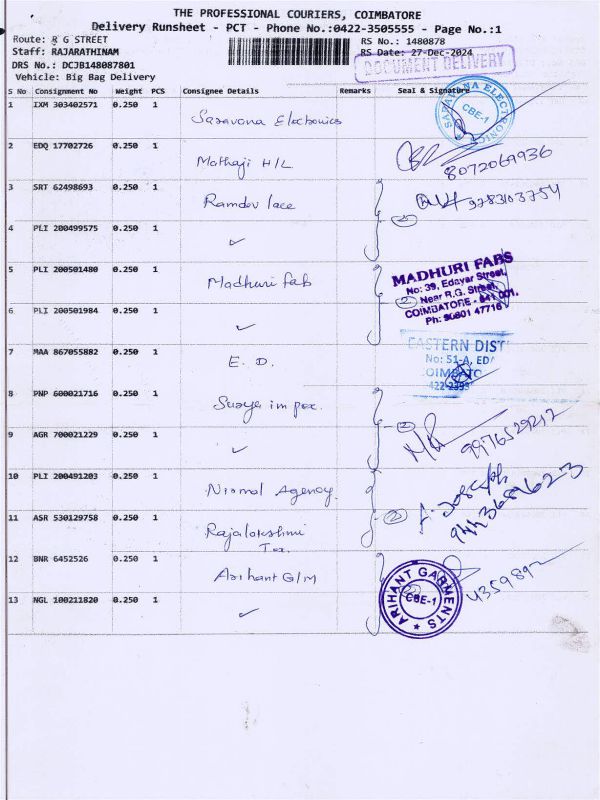 THE PROFESSIONAL COURIERS, COIMBATORE
Delivery Runsheet - PCT - Phone No.:0422-3505555 - Page No.:1
Route: R G STREET
RS No.: 1480878
Staff: RAJARATHINAM
RS Date: 27-Dec-2024
DRS No.: DCJB148087801
DOCUMENT DELIVERY
Vehicle: Big Bag Delivery
S No Consignment No Weight PCS Consignee Details Remarks Seal & Signature
1 IXM 303402571 0.250 1 Saravona Electronics
SARAVANA ELECTRONICS CBE-1
2 EDQ 17702726 0.250 1 Mathaji H/L
8072069936
3 SRT 62498693 0.250 1 Ramdev lace
2
9283103754
4 PLI 200499575 0.250 1 ✓
5 PLI 200501480 0.250 1 Madhuri fab
2
MADHURI FABS
No: 39, Edayar Street,
Near R.G. Street,
COIMBATORE - 641 001.
Ph: 90801 47716
6 PLI 200501984 0.250 1 ✓
7 MAA 867055882 0.250 1 E. D.
EASTERN DIST
No: 51-A, EDA
COIMBATO
422-2393
8 PNP 600021716 0.250 1 Surya impex.
2
9976529212
9 AGR 700021229 0.250 1 ✓
10 PLI 200491203 0.250 1 Nirmal Agency.
2
Joseph
9443689623
11 ASR 530129758 0.250 1 Rajalakshmi
Tex.
12 BNR 6452526 0.250 1 Arihant G/M
ARIHANT GARMENTS CBE-1
13 NGL 100211820 0.250 1 ✓